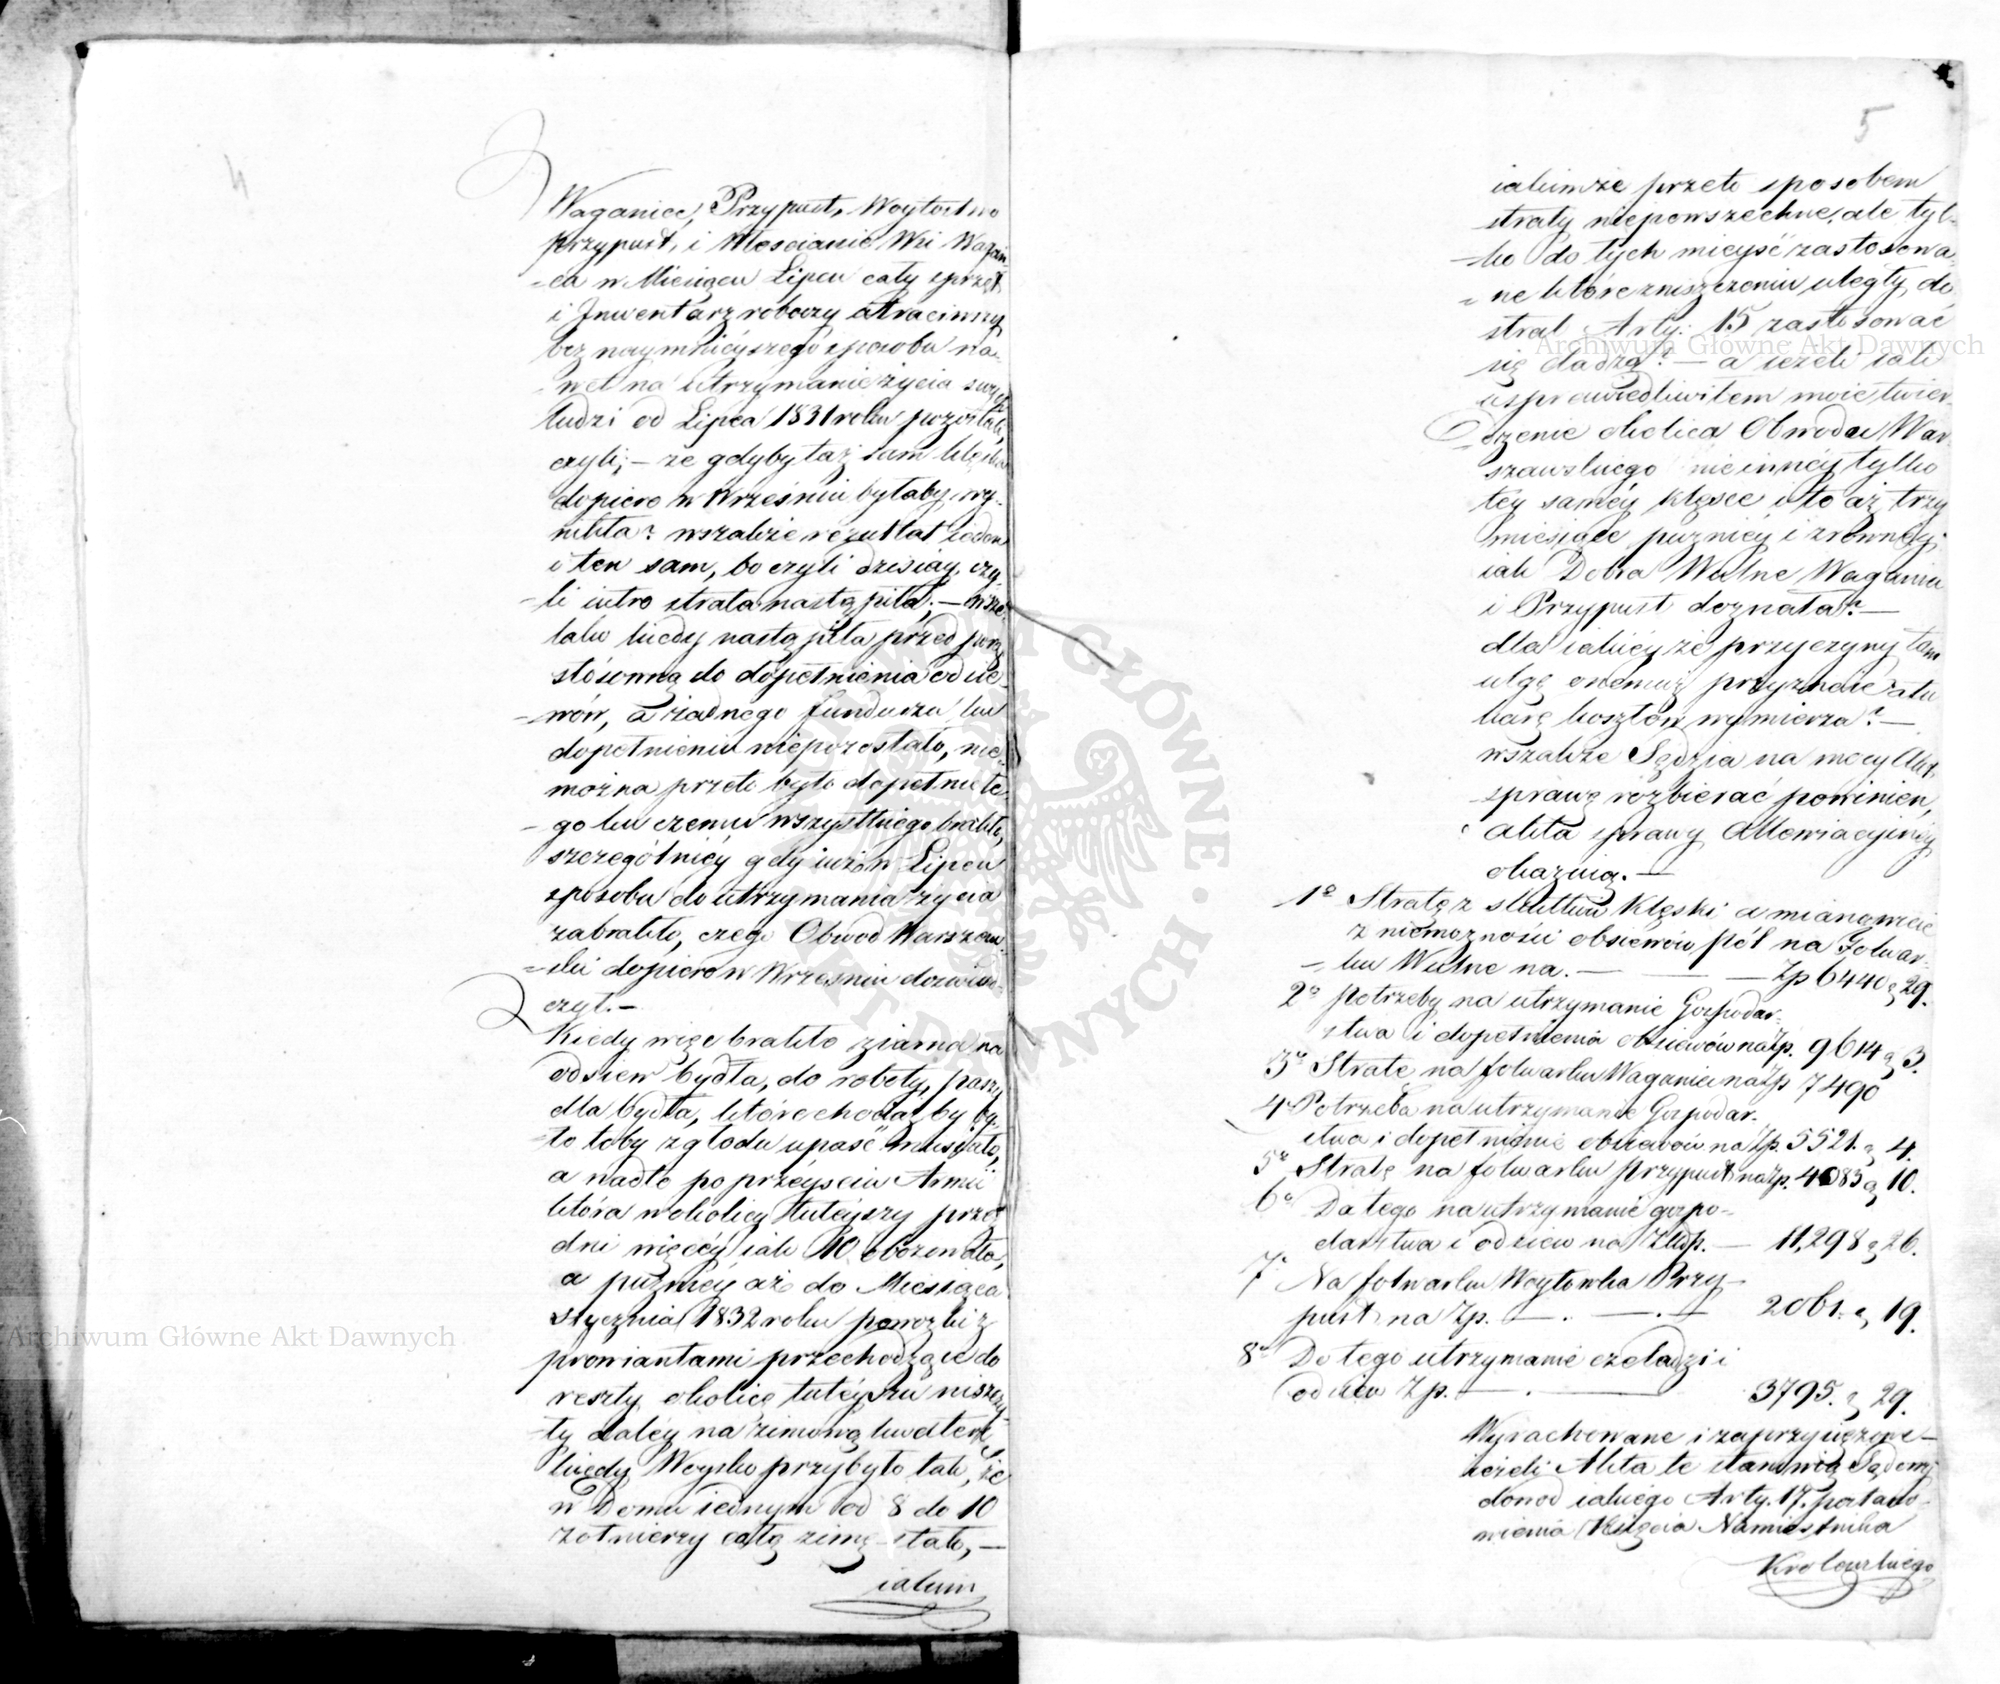 4
Waganiec, Przypust, Woytostwo
przypust, i Włoscianie Wsi Wagań-
-ca w Miesiącu Lipcu cały sprzęt
i Inwentarz roboczy utraciwszy
bez naymnieyszego sposobu na-
-wet na utrzymanie życia swego
ludzi od Lipca 1831 roku pozostali,
czyli; – że gdyby taż sam klęska
dopiero w Wrześniu byłaby wy-
nikła? wszakże rezultat ieden
i ten sam, bo czyli dzisiay, czy-
-li iutro strata nastąpiła; – wsze-
lako kiedy nastąpiła przed porą
stósowną do dopełnienia odsie-
-wów, a żadnego funduszu ku
dopełnieniu niepozostało, nie-
można przeto było dopełnić te-
-go ku czemu wszystkiego brakło,
szczególniéy gdy iuż w Lipcu
sposobu do utrzymania życia
zabrakło, czego Obwod Warszaw-
-ski dopiero w Wrześniu doświad-
czył. –
Kiedy więc brakło ziarna na
odsiew bydła, do roboty, paszy
dla bydła, które chociażby by-
-ło toby z głodu upaść musiało,
a nadto po przéysciu Armii
która w okolicy tutéyszy przez
dni więcéy iak 10 obozowała,
a puźniéy aż do Miesiąca
stycznia 1832 roku powozki z
prowiantami przechodzące do
reszty okolicę tutéyszą niszczy-
-ły daléy na zimową kwaterę
kiedy Woysko przybyło tak, że
w Domu iednym od 8 do 10
żołnierzy całą zimę stało, –
iakim
5
iakimże przeto sposobem
straty niepowszechne, ale tyl-
-ko do tych mieysć zastosowa-
-ne które zniszczeniu uległy, do
strat Arty: 15 zastosować
się dadzą? – a ieżeli iak
usprawiedliwiłem moie twier-
dzenie okolica Obwodu War-
szawskiego nie innéy tylko
téy saméy klęsce i to aż trzy
miesiące puźniéy i zrówney
iak Dobra Wolne Waganiec
i Przypust doznała? –
dla iakiéy że przyczyny tam
ulgę onemuż przyznaie a tu
karę kosztów wymierza? –
wszakże Sędzia na mocy Akt
sprawę rozbierać powinien,
akta sprawy Allewiacyinéy
okazuią. –
1º Stratę z skutku Klęski a mianowicie
z niemożności obsiewów pól na Folwar-
-ku Wolne na. – – – Zp 6440 g 29.
2º potrzeby na utrzymanie Gospodar-
stwa i dopełnienia obsiewów na Zp. 9614 g 3.
3º Strate na folwarku Waganiec na Zp 7490
4º Potrzeba na utrzymanie Gospodar-
stwa i dopełnienie obsiewów na Zp. 5521. g 4.
5º Stratę na folwarku Przypust na Zp. 4083 g 10.
6º Do tego na utrzymanie gospo-
darstwa i odsiew na Złdp. – 11,298 g 26.
7º Na folwarku Woytowka Przy-
pust na Zp. – . – . – 2061. g 19.
8º Do tego utrzymanie czeladzi i
odsiew Zp. – . – 3795. g 29.
Wyrachowane i zaprzysiężone –
ieżeli Akta te stanowią Sądowy
dowod iakiego Arty. 17. postano-
wienia Xsięcia Namiestnika
Krolewskiego
Archiwum Główne Akt Dawnych
Archiwum Główne Akt Dawnych